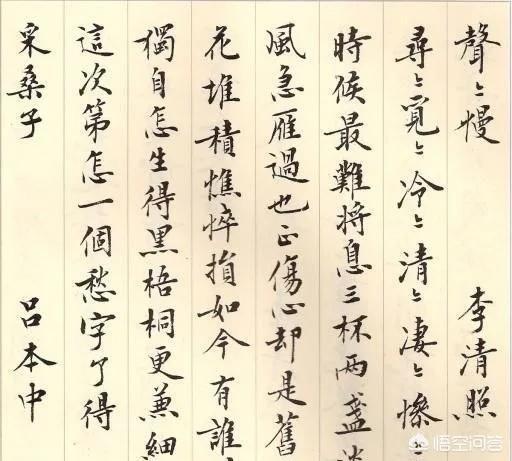 聲々慢 李清照
尋々覓々冷々清々凄々慘々
時候最難將息三杯兩盞淡
風急雁過也正傷心却是舊
花堆積憔悴損如今有誰
獨自怎生得黑梧桐更兼細
這次第怎一個愁字了得
采桑子 呂本中
悟空问答